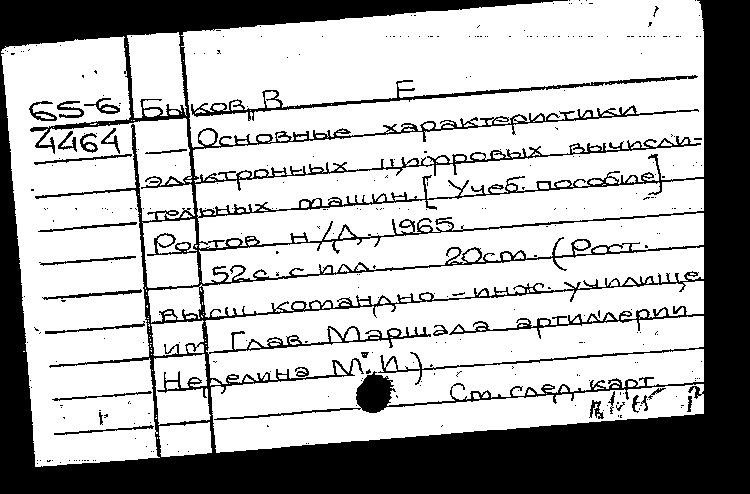 65-6 Быков, В Е
4464 Основные характеристики
электронных цифровых вычисли-
тельных машин. [Учеб. пособие].
Ростов н/Д., 1965.
52 с. с илл. 20 см. (Рост.
высш. командно-инж. училище
им Глав. Маршала артиллерии
Неделина М.И.).
См. след. карт.